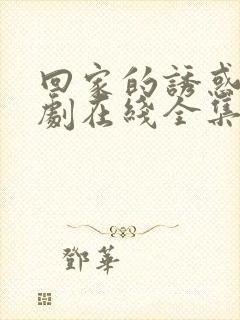 回家的誘惑
劇在綫全集
鄧華